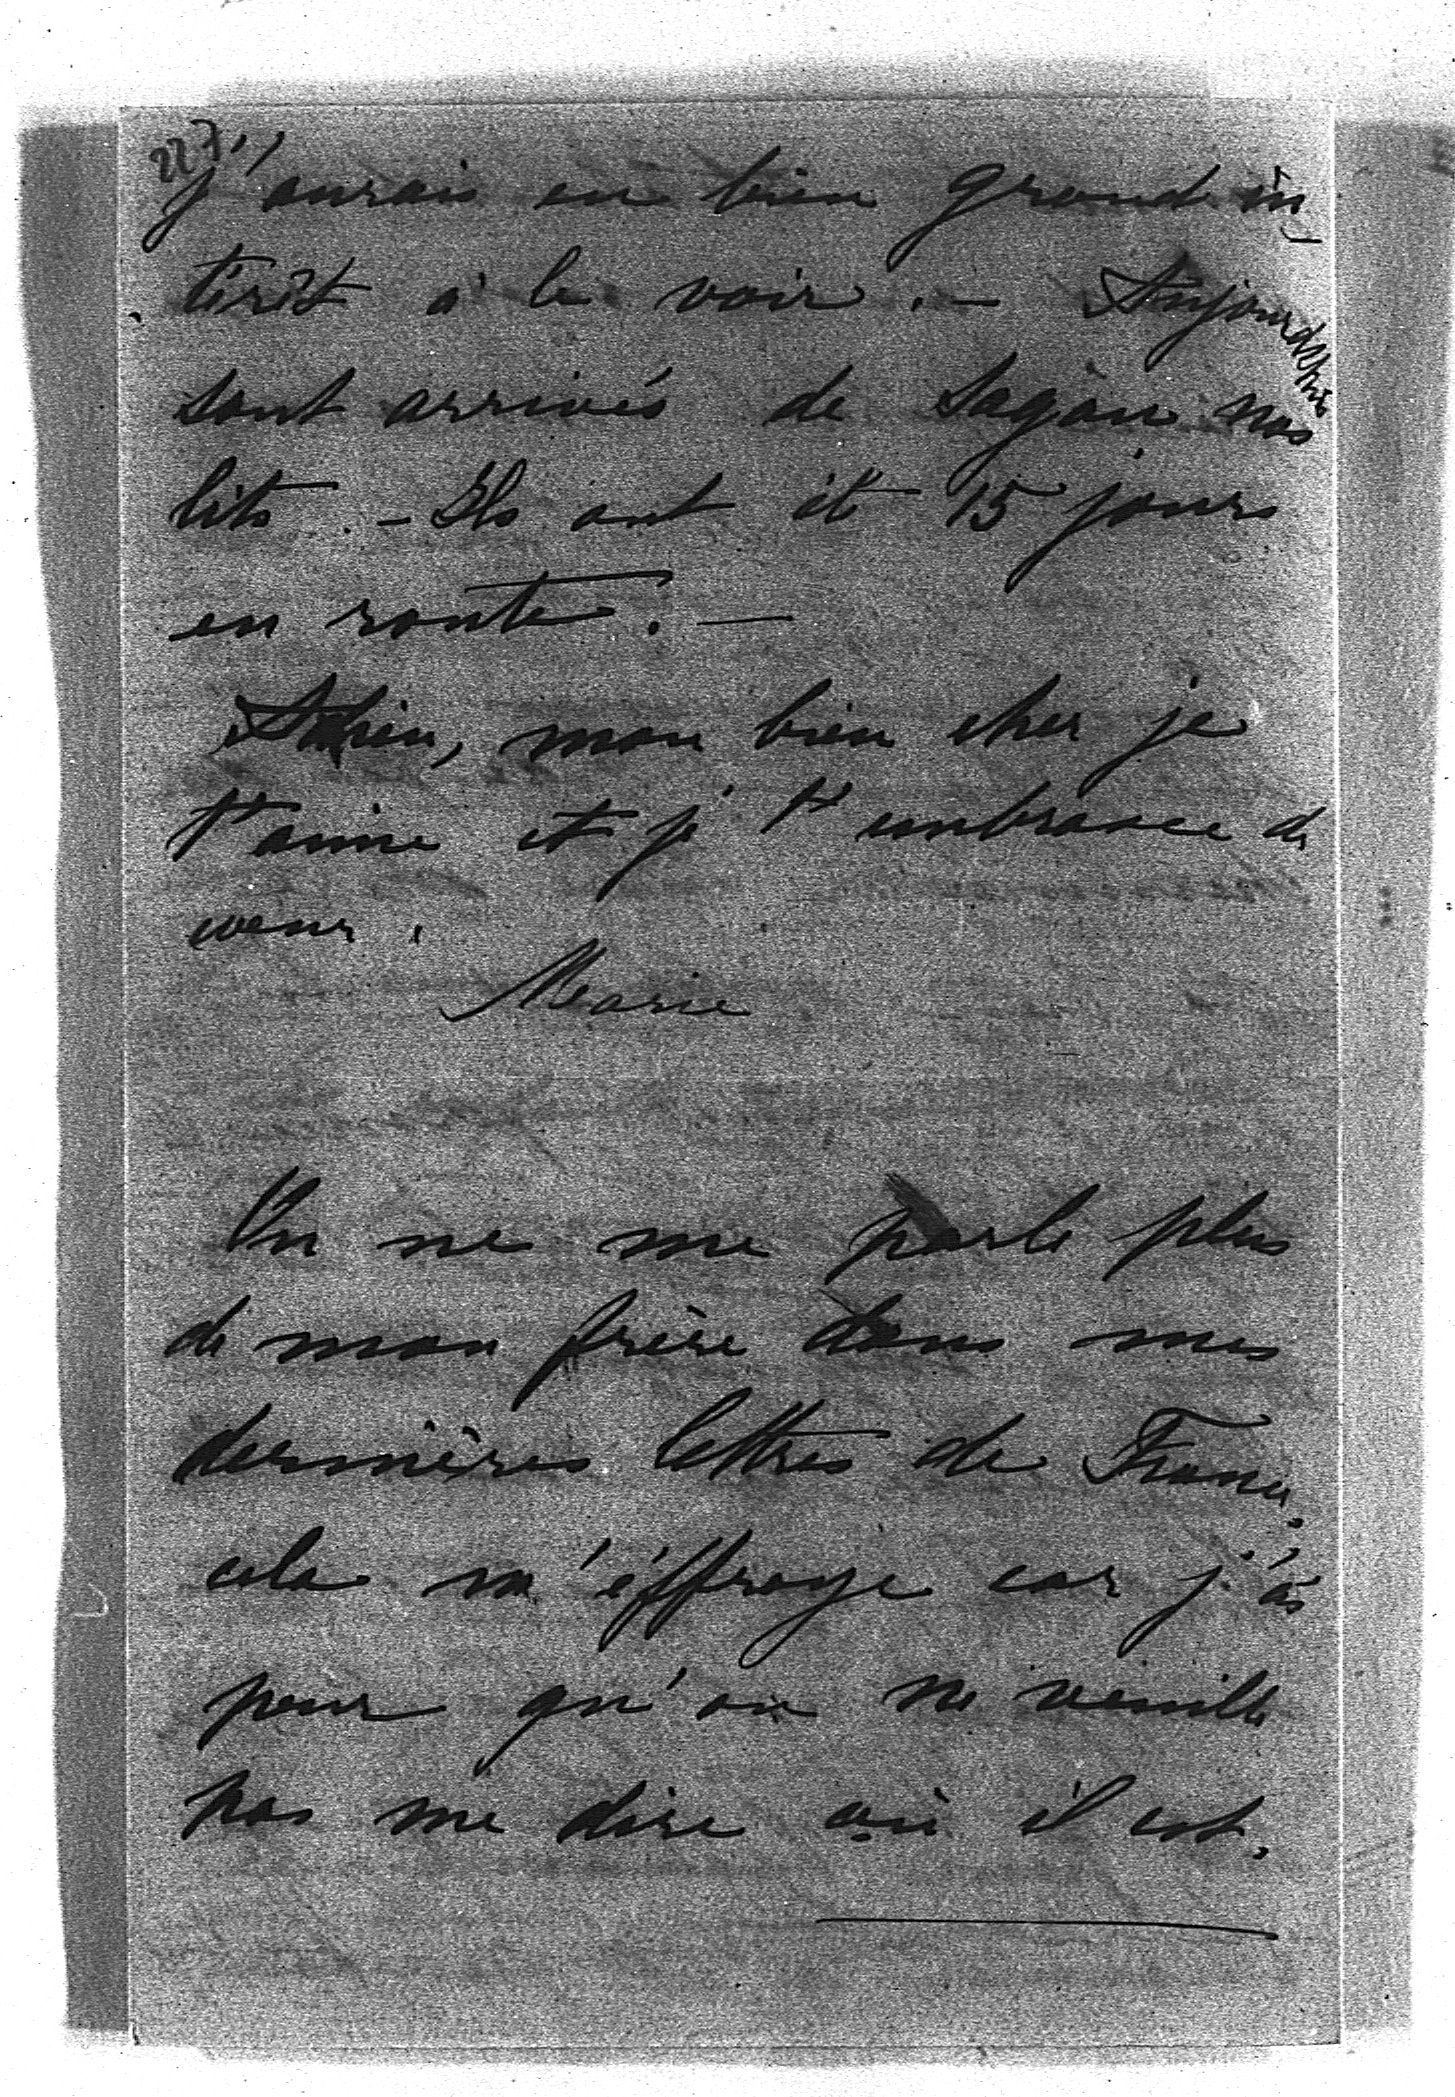 227
j'aurais eu bien grand in
térêt à le voir. - Aujourd'hui
sont arrivés de Sagan nos
lits. - Ils ont été 15 jours
en route. —
Adieu, mon bien cher je
t'aime et je t'embrasse de
coeur.
Marie
On ne me parle plus
de mon frère dans mes
dernières lettres de France,
cela m'éffraye car j'ai
peur qu'on ne veuille
pas me dire où il est.